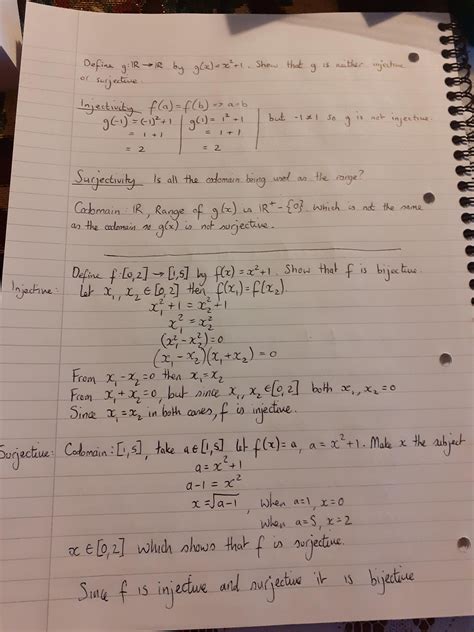 Define g: ℝ → ℝ by g(x) = x² + 1. Show that g is neither injective
or surjective.
Injectivity f(a) = f(b) => a = b
g(-1) = (-1)² + 1 | g(1) = 1² + 1 | but -1 ≠ 1 so g is not injective.
= 1 + 1 | = 1 + 1
= 2 | = 2
Surjectivity Is all the codomain being used as the range?
Codomain: ℝ, Range of g(x) is ℝ⁺ - {0} which is not the same
as the codomain so g(x) is not surjective.
Define f: [0,2] → [1,5] by f(x) = x² + 1. Show that f is bijective.
Injective: Let x₁, x₂ ∈ [0,2] then f(x₁) = f(x₂)
x₁² + 1 = x₂² + 1
x₁² = x₂²
(x₁² - x₂²) = 0
(x₁ - x₂)(x₁ + x₂) = 0
From x₁ - x₂ = 0 then x₁ = x₂
From x₁ + x₂ = 0, but since x₁, x₂ ∈ [0,2] both x₁, x₂ = 0
Since x₁ = x₂ in both cases, f is injective.
Surjective: Codomain: [1,5], take a ∈ [1,5] Let f(x) = a, a = x² + 1. Make x the subject
a = x² + 1
a - 1 = x²
x = √a - 1, when a = 1, x = 0
when a = 5, x = 2
x ∈ [0,2] which shows that f is surjective.
Since f is injective and surjective it is bijective